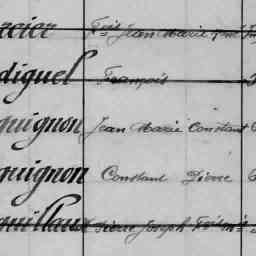 rcier Fois Jean Marie René
diguel François
guignon Jean Marie Constant
guignon Constant Pierre
guillaud Pierre Joseph